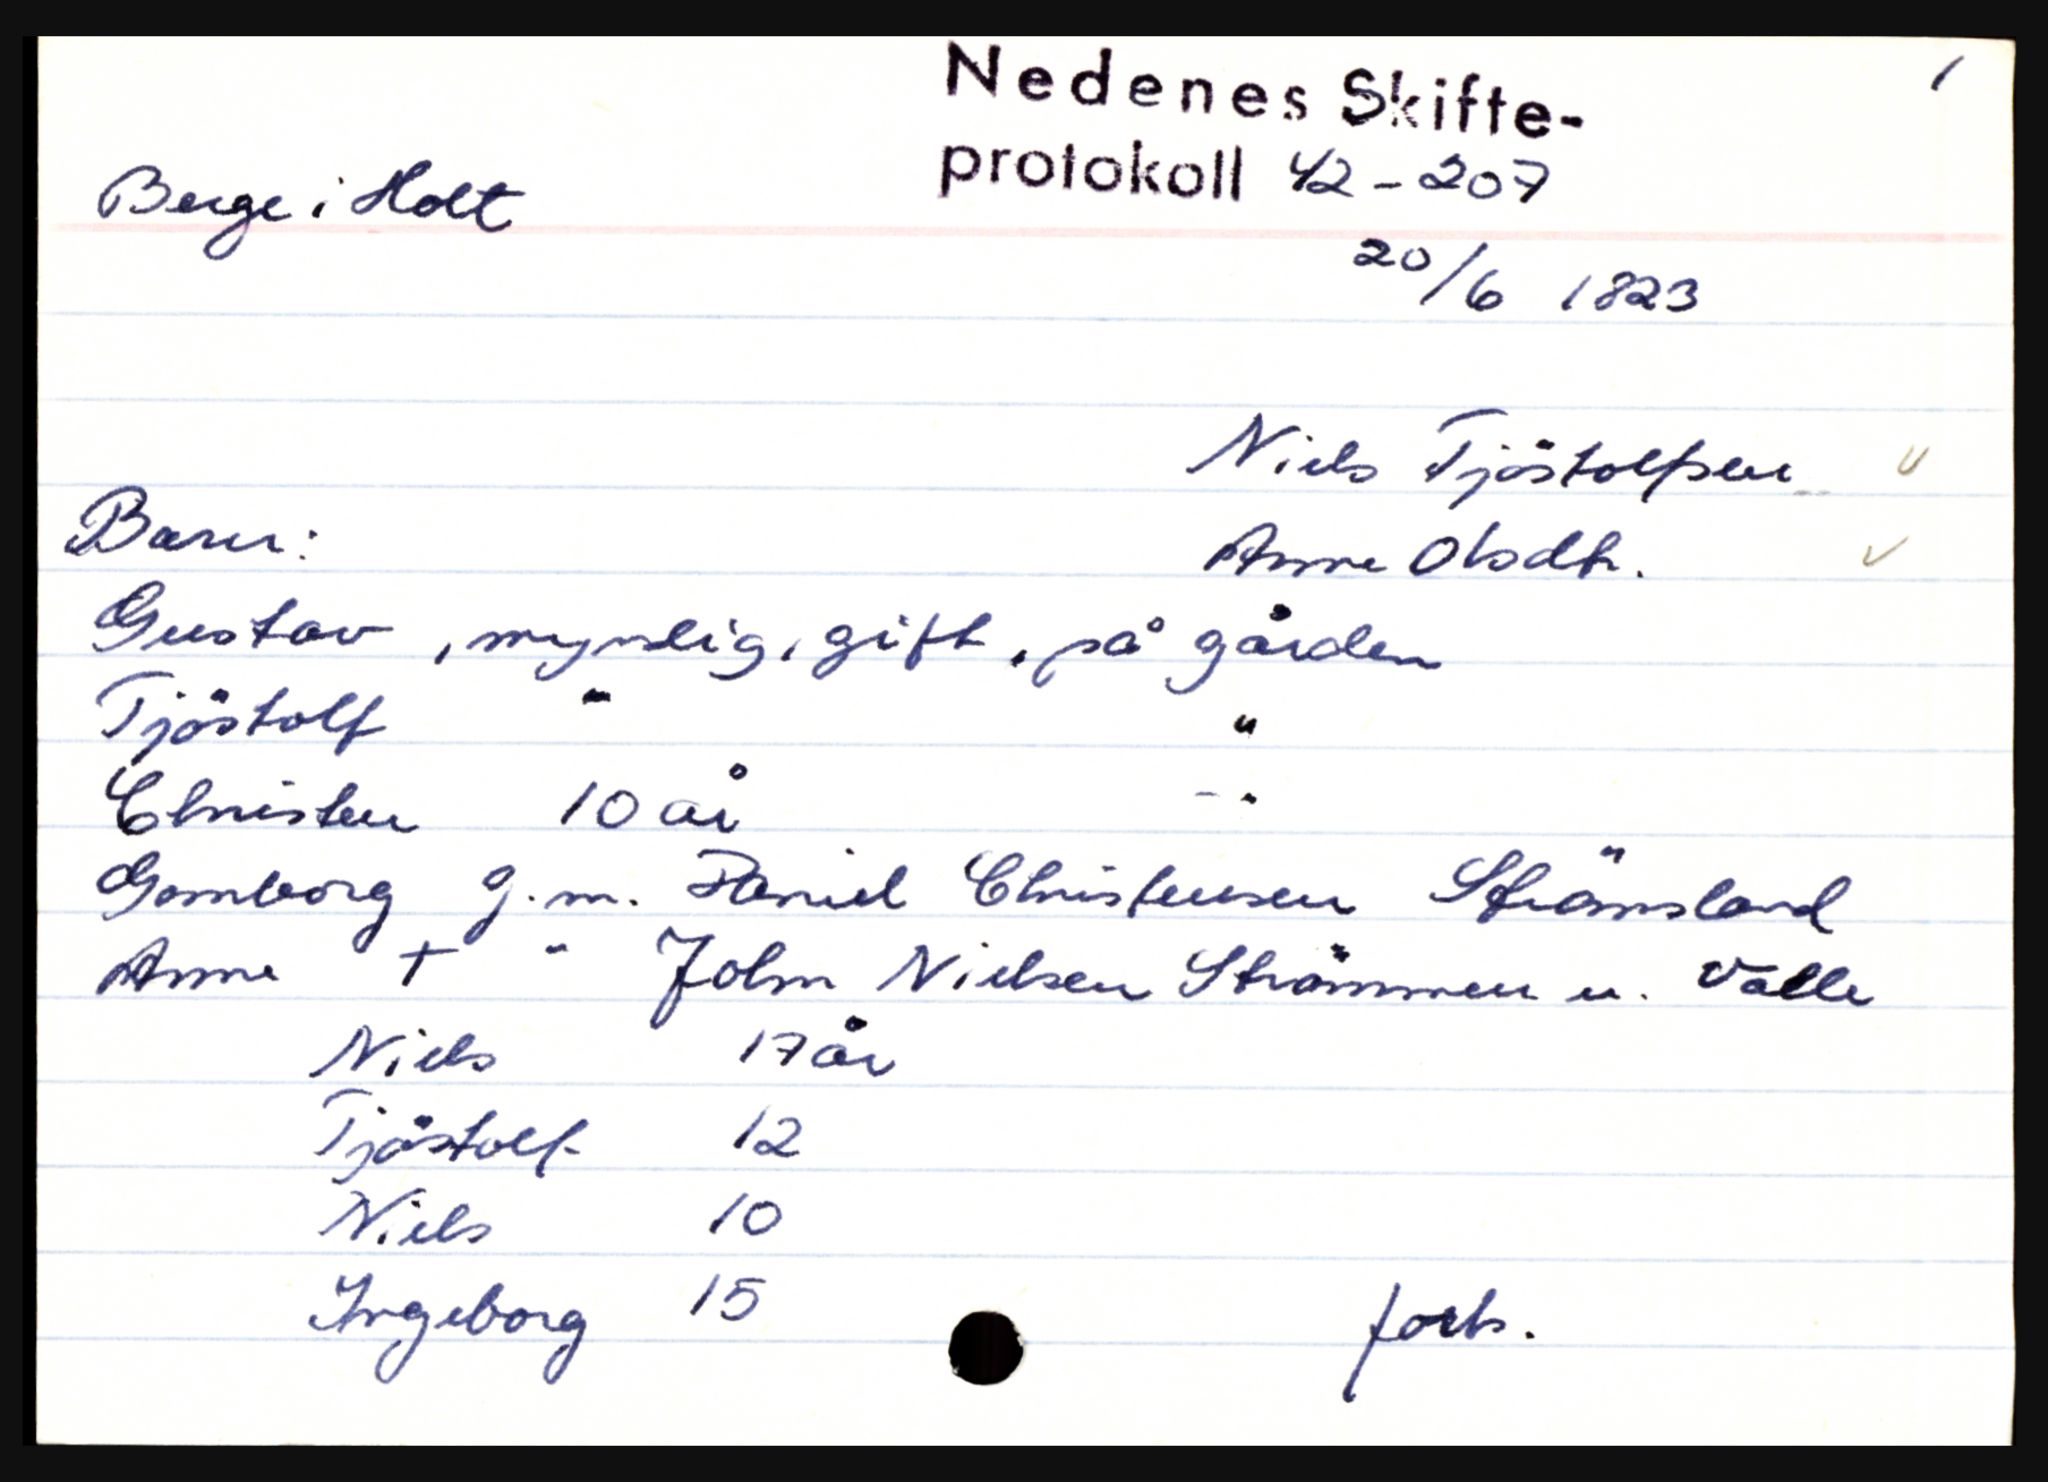 1
Nedenes Skifte-
protokoll 42-207
Berge i Holt
20/6 1823
Niels Tjöstolfsen
Barn:
Anne Olsdtr.
Gustav, myndig, gift, på gården
Tjöstolf " "
Christen 10 år - " -
Gomborg g.m. Daniel Christensen Strömsland
Anne + " John Nielsen Strömmen u. Valle
Niels 17 år
Tjöstolf 12
Niels 10
Ingeborg 15
forts.